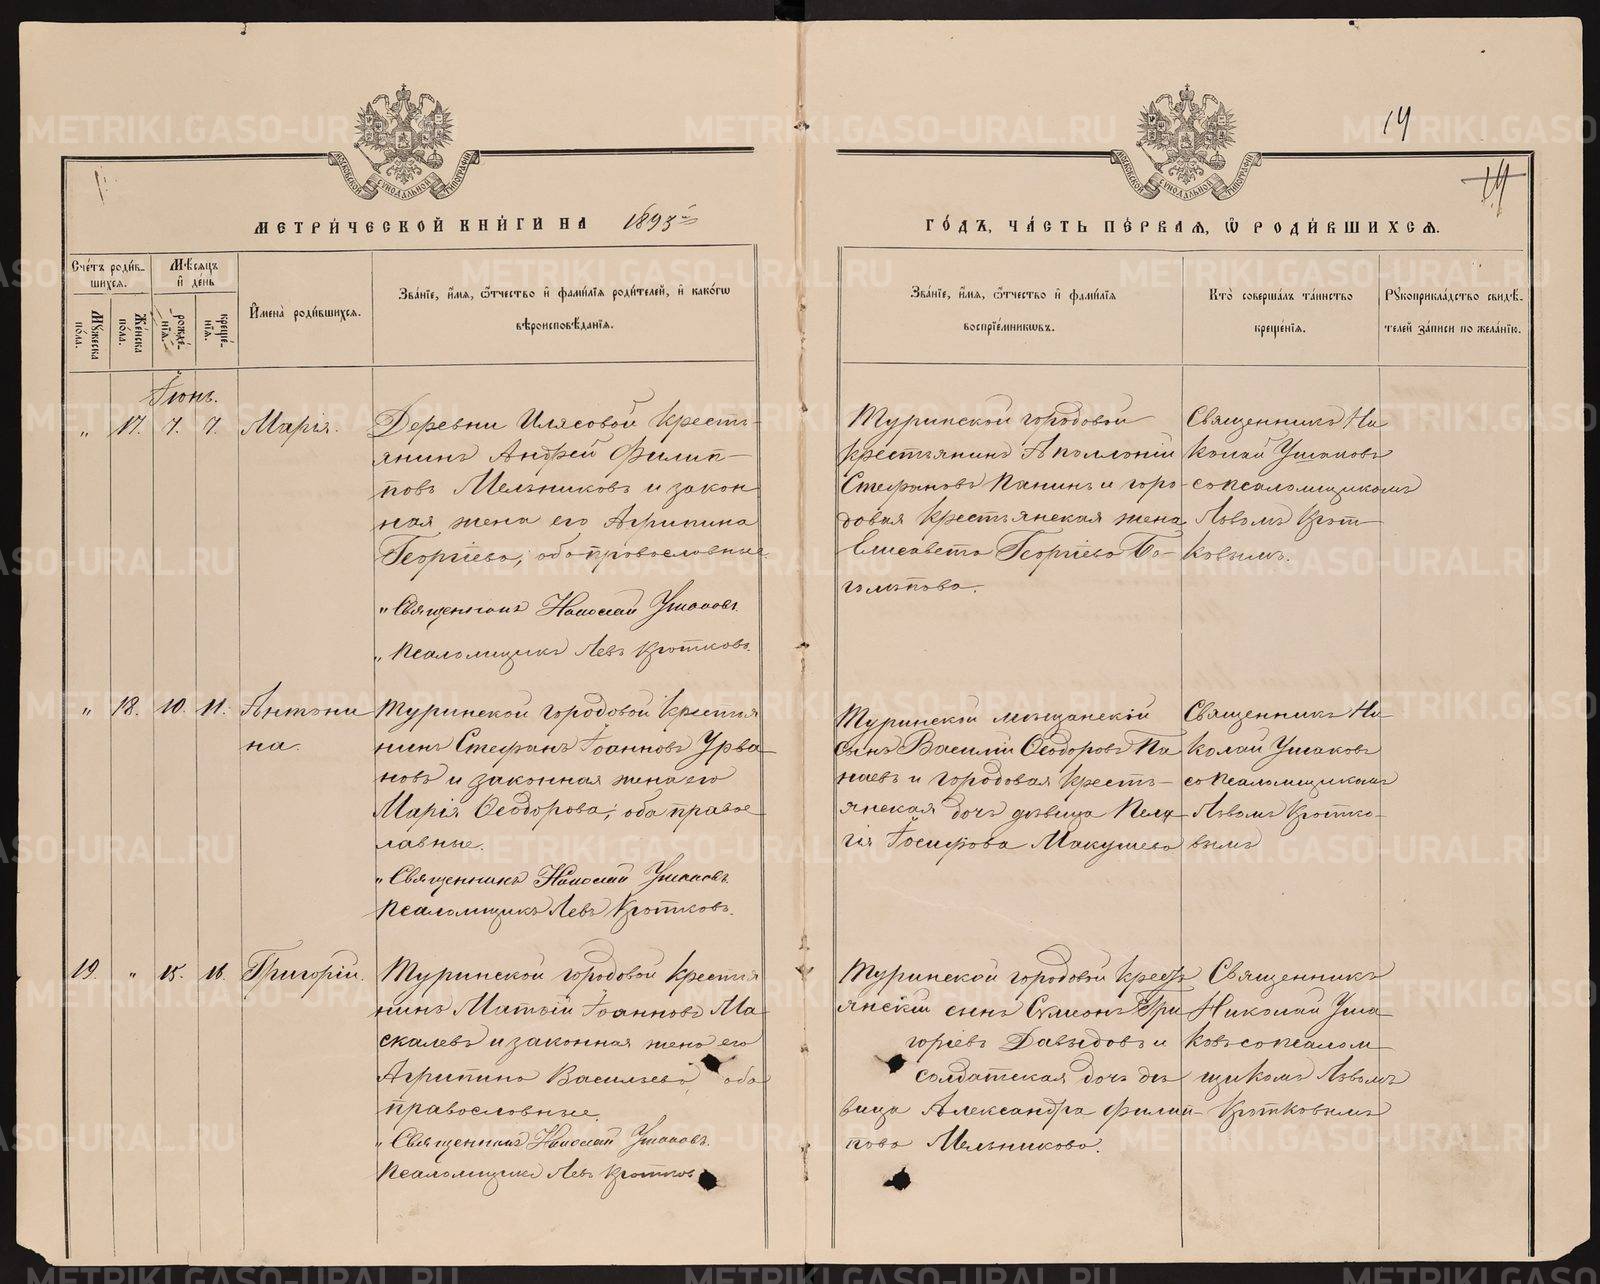 14
14
МОСКОВСКОЙ СѴНОДАЛЬНОЙ ТИПОГРАФІИ
МОСКОВСКОЙ СѴНОДАЛЬНОЙ ТИПОГРАФІИ
МЕТРИ́ЧЕСКОЙ КНИ́ГИ НА 1893й
ГО́ДЪ, ЧА́СТЬ ПЕ́РВАѦ, Ѽ РОДИ́ВШИХСѦ.
Сче́тъ роди́в-
шихсѧ.
Мꙋжеска по́ла.
Же́нска по́ла.
Мѣ́сѧцъ
и҆ де́нь
рожде́-
нїѧ.
креще́-
нїѧ.
И҆мена̀ роди́вшихсѧ.
Зва́нїе, и҆́мѧ, ѻ҆́тчество и҆ фами́лїѧ роди́телей, и҆ како́гѡ
вѣроисповѣ́данїѧ.
Зва́нїе, и҆́мѧ, ѻ҆́тчество и҆ фами́лїѧ
воспрїе́мникѡвъ.
Кто̀ соверша́лъ та́инство
креще́нїѧ.
Рꙋкоприкла́дство свидѣ́-
телей за́писи по жела́нїю.
Іюнь.
" 17. 7. 7. Марія.
Деревни Илясовой кресть-
янинъ Андрей Филип-
повъ Мельниковъ и закон
ная жена его Агрипина
Георгіева, оба православные.
"Священникъ Николай Ушаковъ.
"Псаломщикъ Левъ Кротковъ.
Туринской городовой
крестьянинъ Аполлоній
Стефановъ Панинъ и горо-
довая крестьянская жена
Елисавета Георгіева Бо-
гомъ
Священникъ Ни
колай Ушаковъ
съ псаломщикомъ
Львомъ Крот-
ковымъ.
" 18. 10. 11. Антони
на.
Туринской городовой крестья
нинъ Стефанъ Іоанновъ Урва-
новъ и законная жена его
Марія Ѳеодорова, оба правос
лавные.
"Священникъ Николай Ушаковъ.
Псаломщикъ Левъ Кротковъ.
Туринской мещанскій
сынъ Василій Ѳеодоровъ Па
наевъ и городовая кресть-
янская дочь девица Пела
гія Іосифова Макушева
Священникъ Ни-
колай Ушаковъ
съ псаломщикомъ
Львомъ Кротко-
вымъ
19. " 15. 16. Григорій.
Туринской городовой крестья
нинъ Матѳій Іоанновъ Мо
скалевъ и законная жена его
Агрипина Васильева, оба
православные.
"Священникъ Николай Ушаковъ.
Псаломщикъ Левъ Кротковъ
Туринской городовой кресть
янскій сынъ Сѵмеонъ Гри
горіевъ Давыдовъ и
солдатская дочь де
вица Александра Филип-
пова Мельникова.
Священникъ
Николай Уша-
ковъ съ псалом-
щикомъ Львомъ
Кротковымъ
METRIKI.GASO-URAL.RU